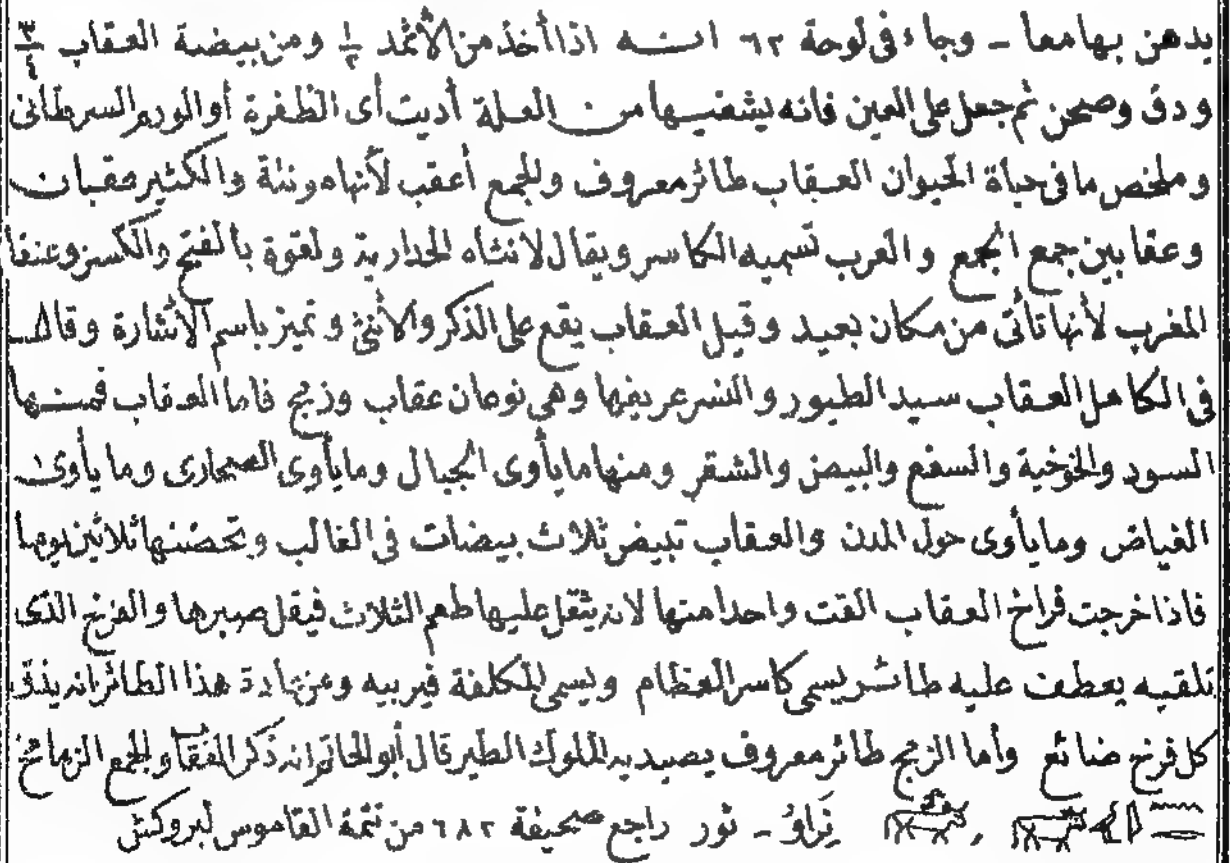 يدهن بها معا - وجاء فى لوحة ٦٢ انه اذا أخذ من الأثمد ١/٢ ومن بيضة العقاب ٣/٤
ودق وصحن ثم جعل على العين فانه يشفيها من العلة أديت أى الظفرة أو الورم السرطانى
وملخص ما فى حياة الحيوان العقاب طائر معروف والجمع أعقب لأنها مؤنثة والكثير عقبان
وعقابين جمع الجمع والعرب تسميه الكاسر ويقال لانثاه الخدارية ولقوة بالفتح والكسر وعنقا
المغرب لأنها تأتى من مكان بعيد وقيل العقاب يقع على الذكر والأنثى وتميز باسم الأشارة وقال
فى الكامل العقاب سيد الطيور والنسر عريفها وهى نوعان عقاب وزمج فاما العقاب فمنها
السود والخوخية والسفع والبيض والشقر ومنها ما يأوى الجبال وما يأوى الصحارى وما يأوى
الغياض وما يأوى حول المدن والعقاب تبيض ثلاث بيضات فى الغالب وتحضنها ثلاثين يوما
فاذا خرجت فراخ العقاب القت واحدا منها لانه يثقل عليها طعم الثلاث فيقل صبرها والفرخ الذى
تلقيه يعطف عليه طائر يسمى كاسر العظام ويسمى المكلفة فيربيه وعن عادة هذا الطائر انه يذق
كل فرخ ضائع وأما الزمج طائر معروف يصيد به الملوك الطير قال أبو الحاتم انه ذكر العقا والجمع الزمامج
نراؤ - ثور راجع صحيفة ٦٨٢ من تتمة القاموس لبروكش